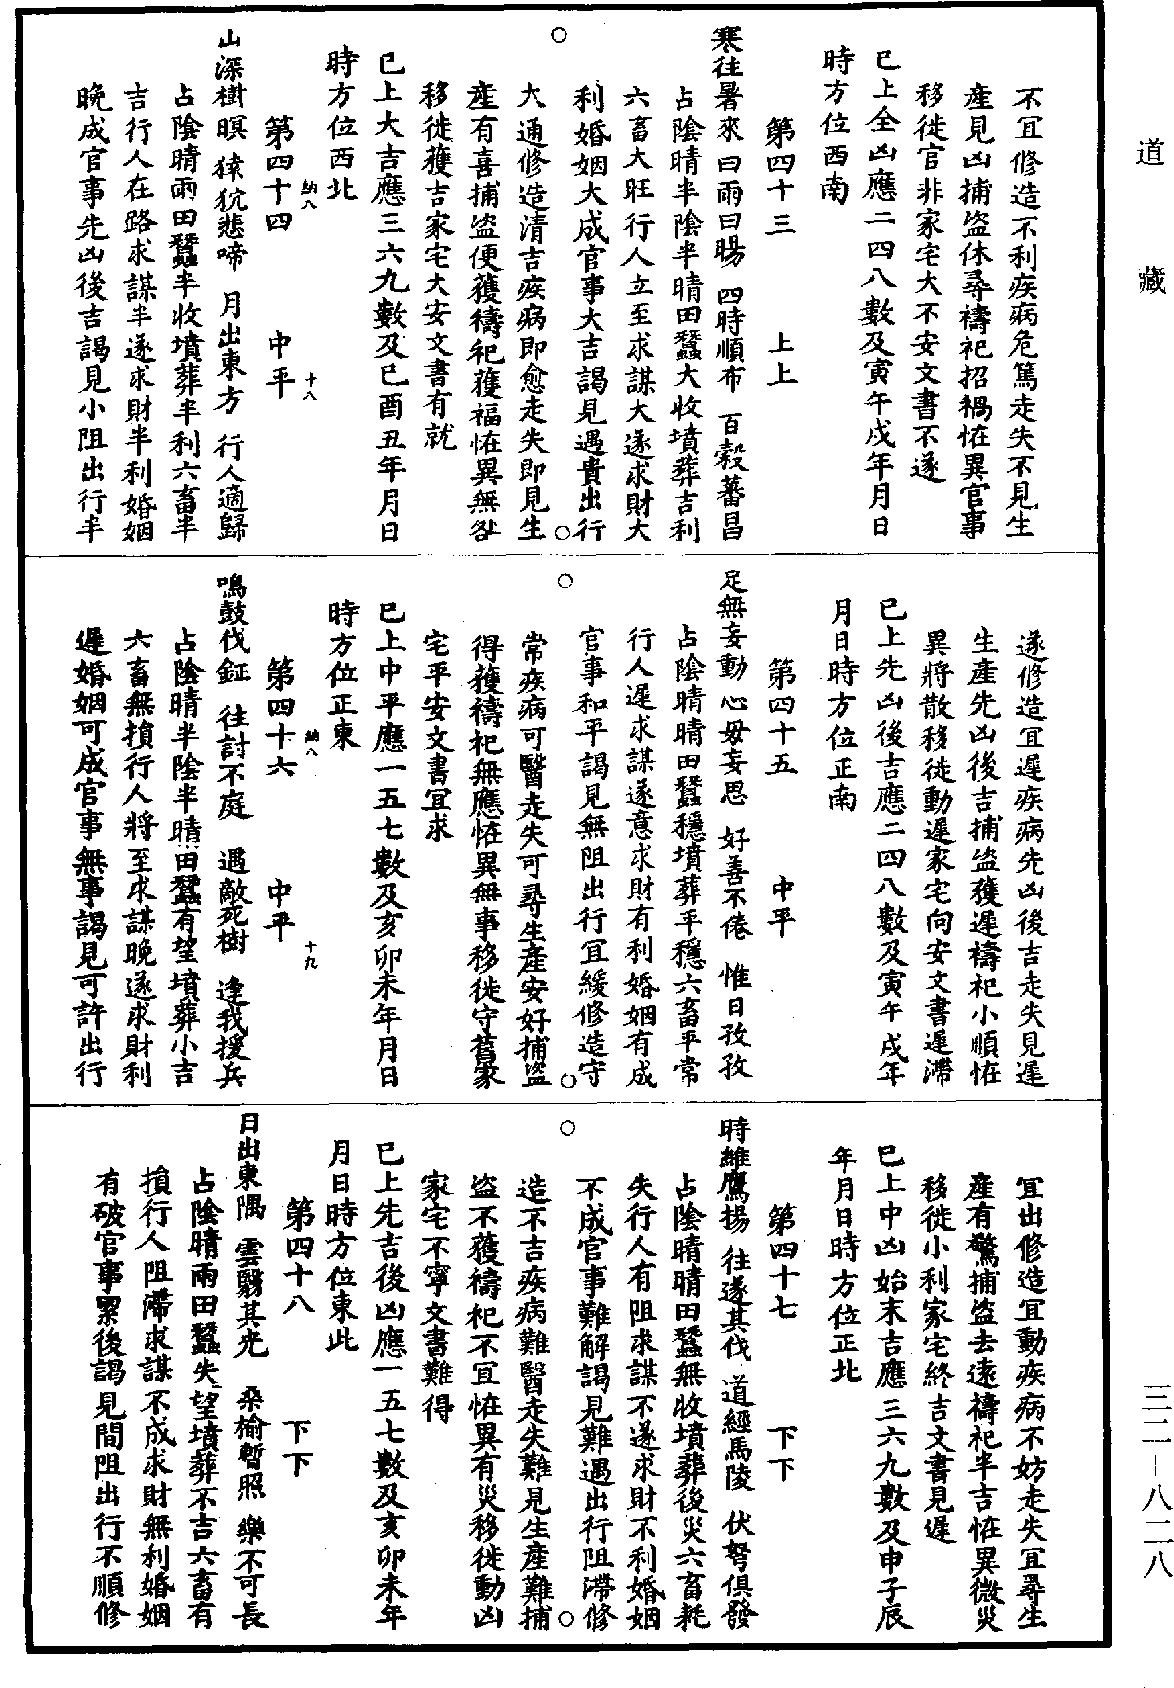 道藏
不宜修造不利疾病危篤走失不見生
產見凶捕盜休尋禱祀招禍恠異官事
移徙官非家宅大不安文書不遂
已上全凶應二四八數及寅午戌年月日
時方位西南
第四十三　上上
寒往暑來　曰雨曰暘　四時順布　百穀蕃昌
占陰晴半陰半晴田蠶大收墳葬吉利
六畜大旺行人立至求謀大遂求財大
利婚姻大成官事大吉謁見遇貴出行
大通修造清吉疾病即愈走失即見生
產有喜捕盜便獲禱祀獲福恠異無咎
移徙獲吉家宅大安文書有就
已上大吉應三六九數及巳酉丑年月日
時方位西北
第四十四　中平
納八　十八
山深樹暝　猿狖悲啼　月出東方　行人適歸
占陰晴雨田蠶半收墳葬半利六畜半
吉行人在路求謀半遂求財半利婚姻
晚成官事先凶後吉謁見小阻出行半
遂修造宜遲疾病先凶後吉走失見遲
生產先凶後吉捕盜獲遲禱祀小順恠
異將散移徙動遲家宅向安文書遲滯
已上先凶後吉應二四八數及寅午戌年
月日時方位正南
第四十五　中平
足無妄動　心毋妄思　好善不倦　惟日孜孜
占陰晴晴田蠶穩墳葬平穩六畜平常
行人遲求謀遂意求財有利婚姻有成
官事和平謁見無阻出行宜緩修造守
常疾病可醫走失可尋生產安好捕盜
得獲禱祀無應恠異無事移徙守舊家
宅平安文書宜求
已上中平應一五七數及亥卯未年月日
時方位正東
第四十六　中平
納八　十九
鳴鼓伐鉦　往討不庭　遇敵死樹　逢我援兵
占陰晴半陰半晴田蠶有望墳葬小吉
六畜無損行人將至求謀晚遂求財利
遲婚姻可成官事無事謁見可許出行
宜出修造宜動疾病不妨走失宜尋生
產有驚捕盜去遠禱祀半吉恠異微災
移徙小利家宅終吉文書見遲
已上中凶始末吉應三六九數及申子辰
年月日時方位正北
第四十七　下下
時維鷹揚　往遂其伐　道經馬陵　伏弩俱發
占陰晴晴田蠶無收墳葬後災六畜耗
失行人有阻求謀不遂求財不利婚姻
不成官事難解謁見難遇出行阻滯修
造不吉疾病難醫走失難見生產難捕
盜不獲禱祀不宜恠異有災移徙動凶
家宅不寧文書難得
已上先吉後凶應一五七數及亥卯未年
月日時方位東此
第四十八　下下
日出東隅　雲翳其光　桑榆暫照　樂不可長
占陰晴雨田蠶失望墳葬不吉六畜有
損行人阻滯求謀不成求財無利婚姻
有破官事累後謁見間阻出行不順修
三二－八二八